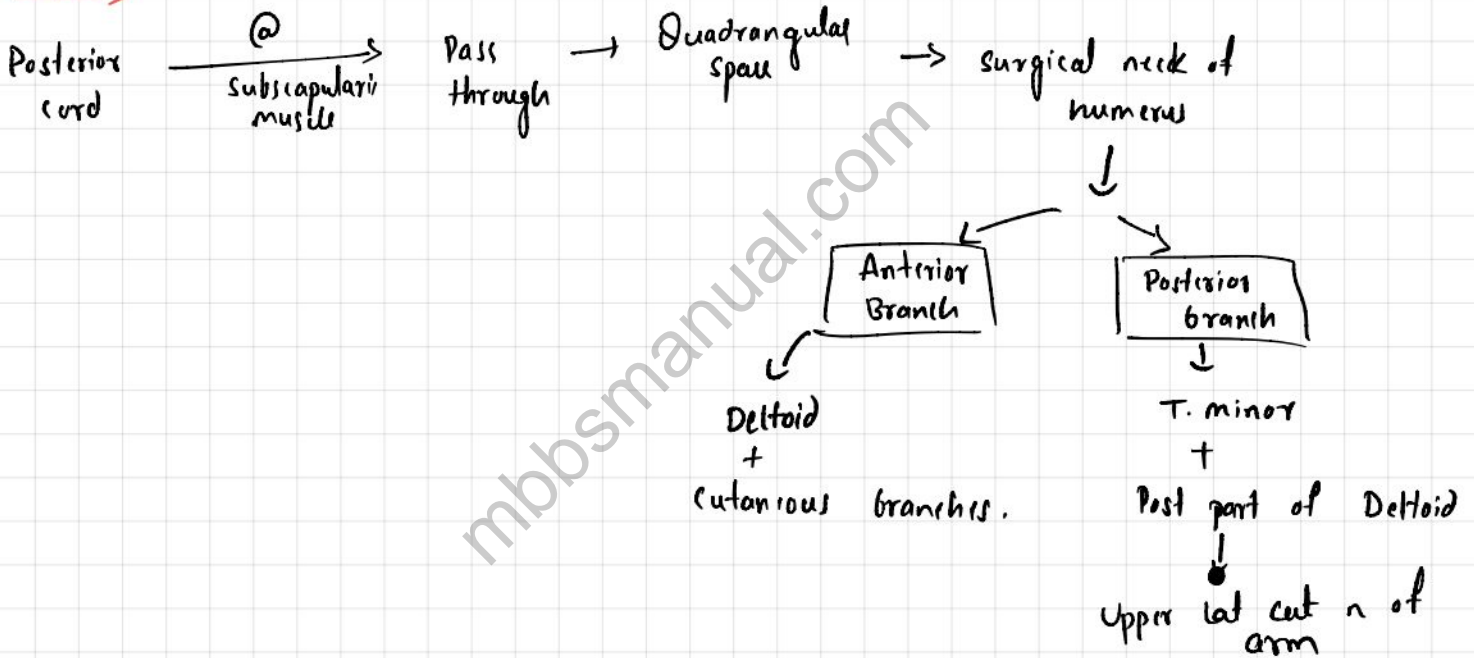 Posterior
cord
@
subscapularis
muscle
Pass
through
Quadrangular
space
surgical neck of
humerus
Anterior
Branch
Posterior
branch
Deltoid
+
Cutaneous branches.
T. minor
+
Post part of Deltoid
Upper lat cut n of
arm
mbbsmanual.com